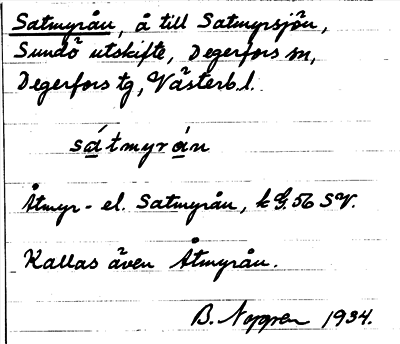 Satmyrån, å till Satmyrsjön,
Sundö utskifte, Degerfors sn,
Degerfors tg, Västerb. l.
sátmyrán
Åtmyr- el. Satmyrån, k G. 56 SV.
Kallas även Åtmyrån.
B. 1934.